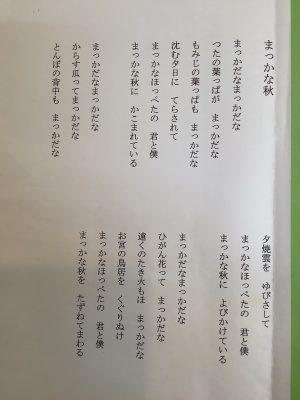 まっかな秋
まっかだなまっかだな
つたの葉っぱが　まっかだな
もみじの葉っぱも　まっかだな
沈む夕日に　てらされて
まっかなほっぺたの　君と僕
まっかな秋に　かこまれている
まっかだなまっかだな
からす瓜ってまっかだな
とんぼの背中も　まっかだな
夕焼雲を　ゆびさして
まっかなほっぺたの　君と僕
まっかな秋に　よびかけている
まっかだなまっかだな
ひがん花って　まっかだな
遠くのたき火もほ　まっかだな
お宮の鳥居を　くぐりぬけ
まっかなほっぺたの　君と僕
まっかな秋を　たずねてまわる